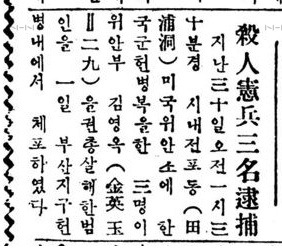 殺人憲兵三名逮捕
지난三十일오전一시三
十분경 시내전포동(田
浦洞)미국위안소에 한
국군헌병복을한 三명이
위안부 김영옥(金英玉
=二九)을권총살해한범
인을 一일 부산지구헌
병대에서 체포하였다